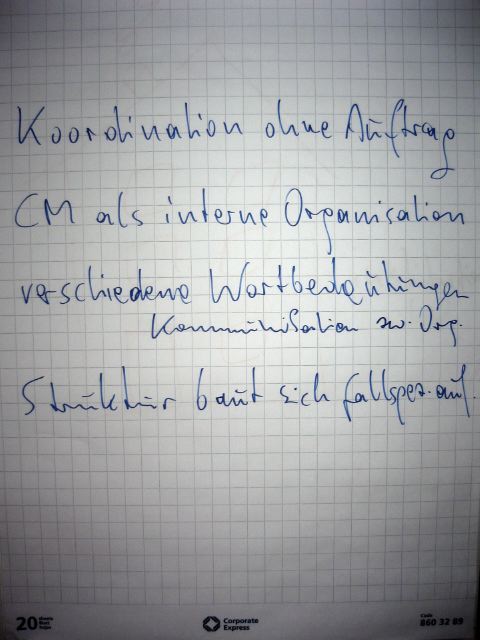 Koordination ohne Auftrag
CM als interne Organisation
verschiedene Wortbedeutungen
Kommunikation zw. Org.
Struktur baut sich fallspez. auf.
20
Corporate
Express
Code
860 32 89